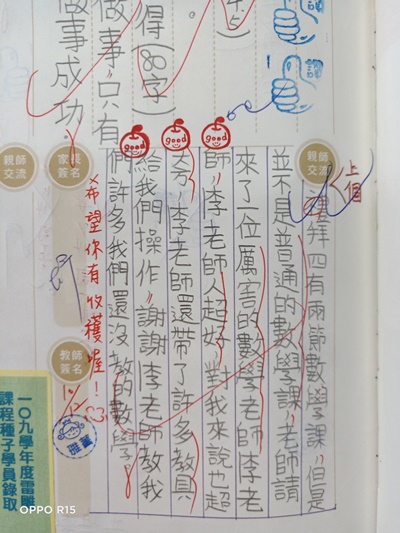 得(80字)
做事，只有
做事成功。
親師
交流
上個
禮拜四有兩節數學課，但是
並不是普通的數學課，老師請
來了一位厲害的數學老師李老
師，李老師人超好，對我來說也超
夯，李老師還帶了許多教具
給我們操作，謝謝李老師教我
們許多我們還沒教的數學！
good
good
good
希望你有收穫喔！
家長
簽名
教師
簽名
親師
交流
一〇九學年度雷雕
課程種子學員錄取
OPPO R15